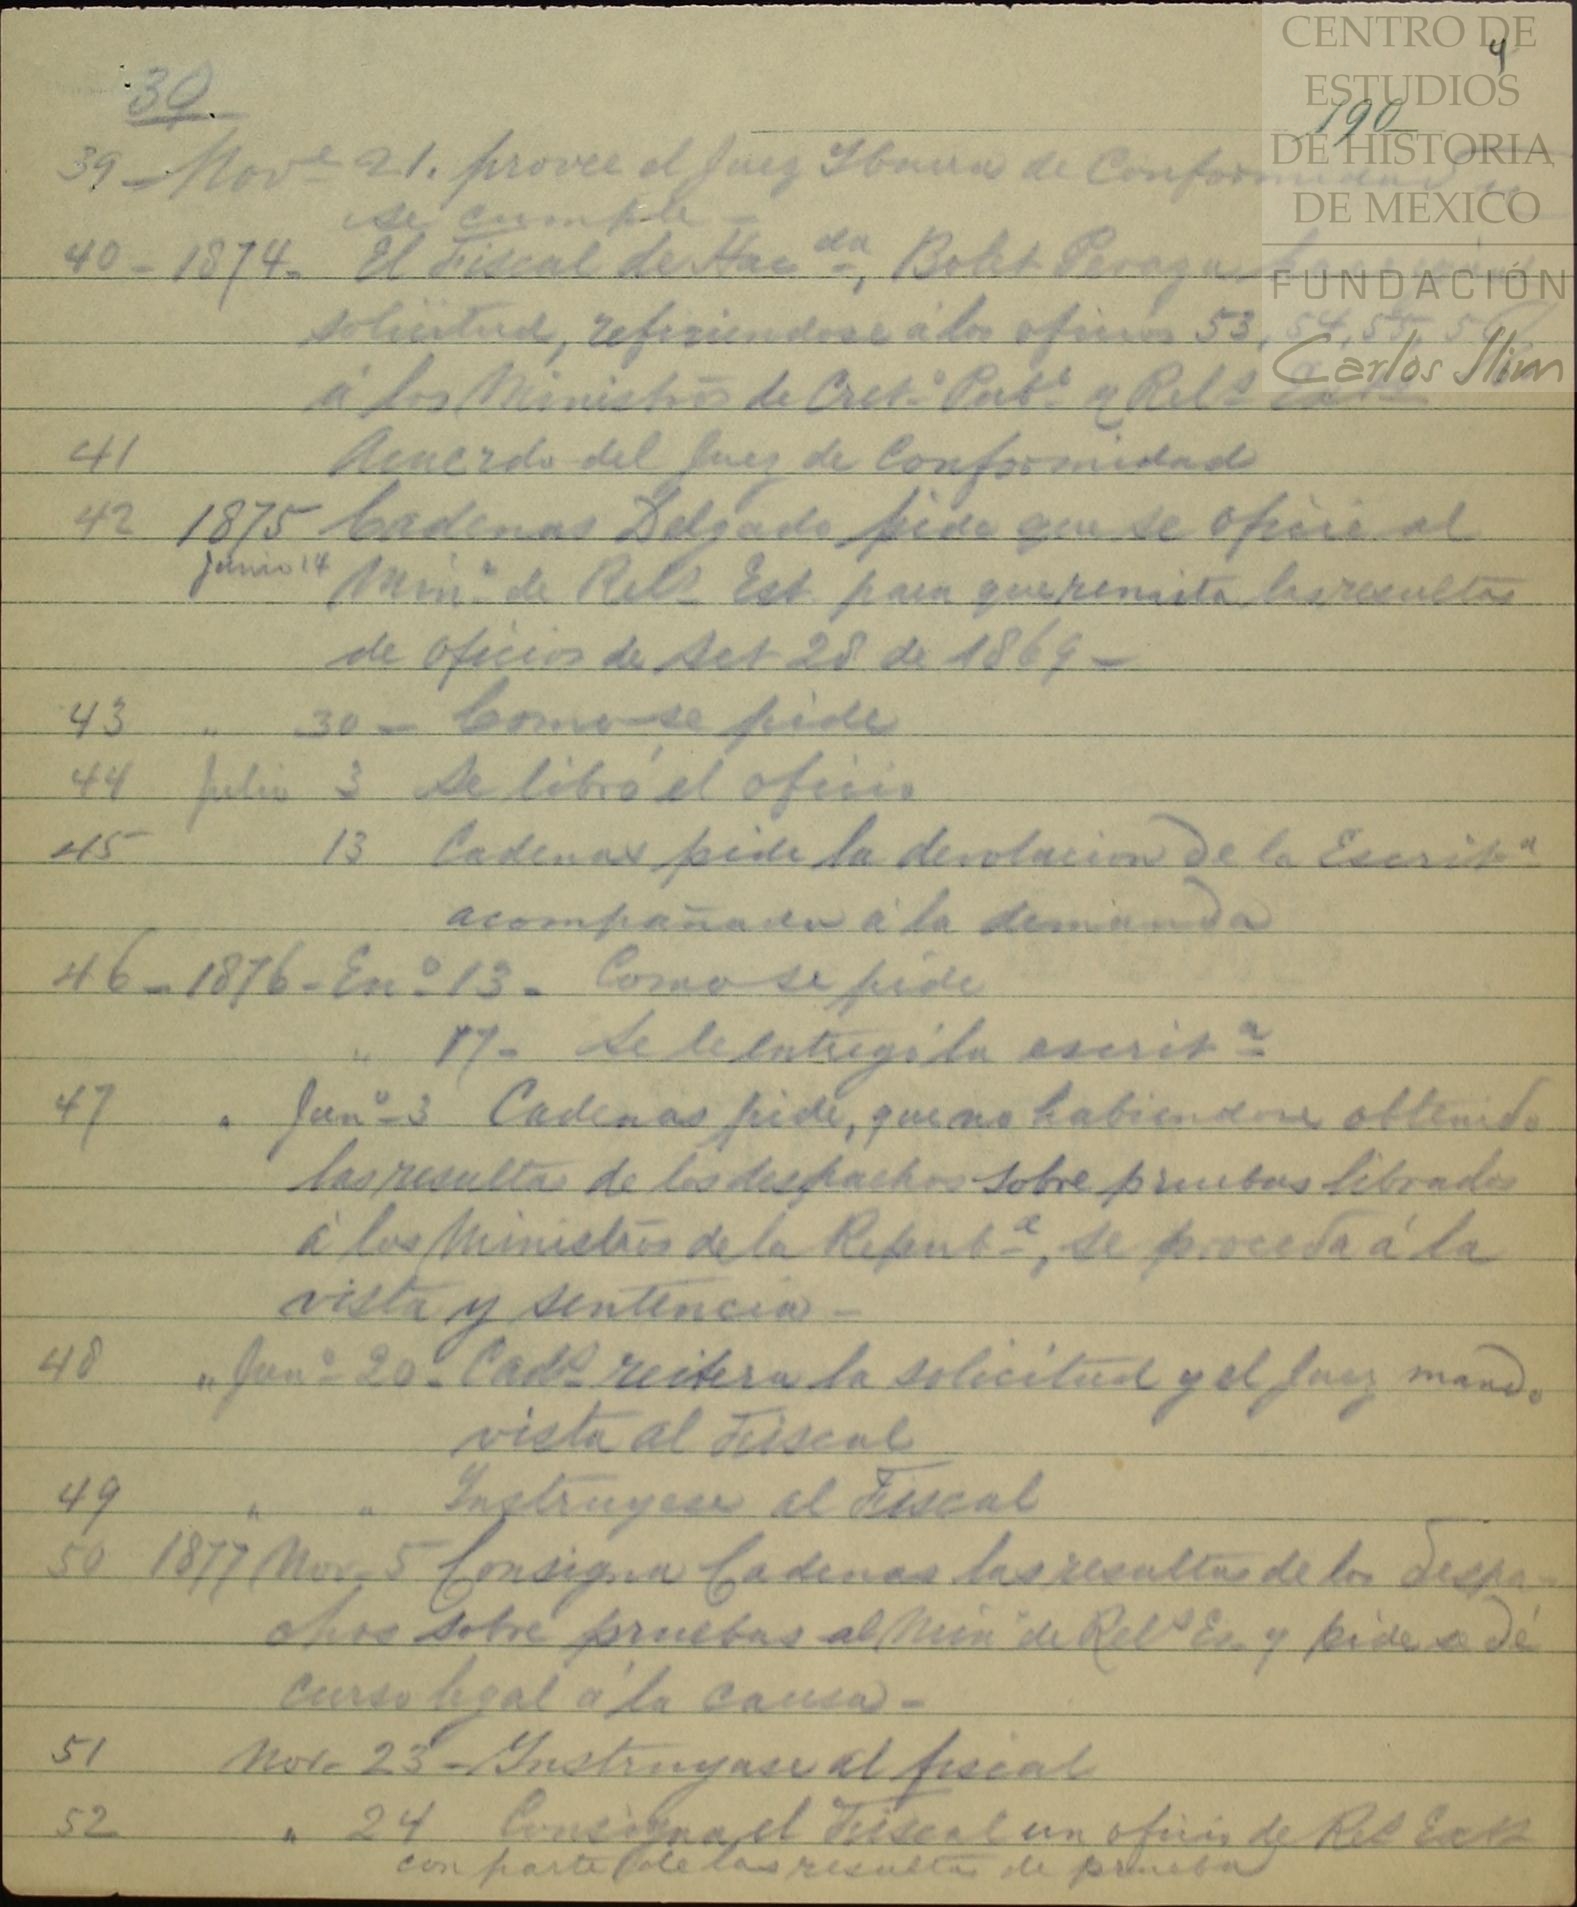 CENTRO DE
ESTUDIOS
DE HISTORIA
DE MEXICO
FUNDACIÓN
Carlos Slim
4
190
30
39 - Nov.e 21. provee el Juez Ibarra de Conformidad y
se cumple -
40 - 1874 - El Fiscal de Hac.da, Bolet Peraza
solicitud, refiriendose á los oficios 53, 54, 55, 56
á los Ministros de Cret.o Pub.o y Rel.s Ext.s
41 Acuerdo del Juez de Conformidad
42 1875 Cadenas Delgado pide que se oficie al
Junio 14 Min.o de Rel.s Ext. para que remita las resultas
de oficios de Set 28 de 1869 -
43 " 30 - Como se pide
44 Julio 3 Se libró el oficio
45 13 Cadenas pide la devolucion de la Escrit.a
acompañada á la demanda
46 - 1876 - En.o 13 - Como se pide
" 17 - Se le entregó la escrit.a
47 " Jun.o 3 Cadenas pide, que no habiendose obtenido
las resultas de los despachos sobre pruebas librados
á los Ministros de la Repub.a, se proceda á la
vista y sentencia -
48 " Jun.o 20 - Cad.s reitera la solicitud y el Juez mandó
vista al Fiscal
49 " " Instruyese al Fiscal
50 1877 Nov. 5 Consigna Cadenas las resultas de los despa-
chos sobre pruebas al Min.o de Rel.s Ex. y pide se dé
curso legal á la causa -
51 Nov. 23 - Instruyase al fiscal
52 " 24 Consigna el Fiscal un oficio de Rel.s Ext.s
con parte de las resultas de prueba